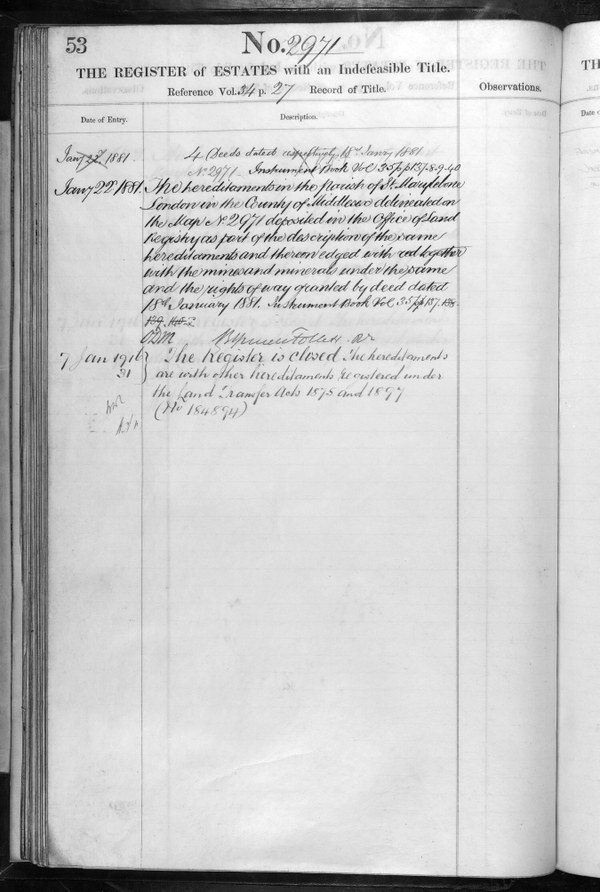 53
No. 2971
THE REGISTER of ESTATES with an Indefeasible Title.
Reference Vol. 34 p. 27 Record of Title.
Observations.
Date of Entry.
Description.
Jany 22d 1881.
4 Deeds dated respectively 18th Janry 1881.
No 2971. Instrument Book Vol 35 pp 137-8-9-40
Jany 22d 1881.
The hereditaments in the parish of St. Marylebone
London in the County of Middlesex delineated on
the Map No 2971 deposited in the Office of Land
Registry as part of the description of the same
hereditaments and thereon edged with red together
with the mines and minerals under the same
and the rights of way granted by deed dated
18th January 1881. Instrument Book Vol 35 pp 137. 138.
139. 140.
Follett. Rr
7 Jan 1916
31
The Register is closed The hereditaments
are with other hereditaments registered under
the Land Transfer Acts 1875 and 1897
(No 184894)
TH
Date o